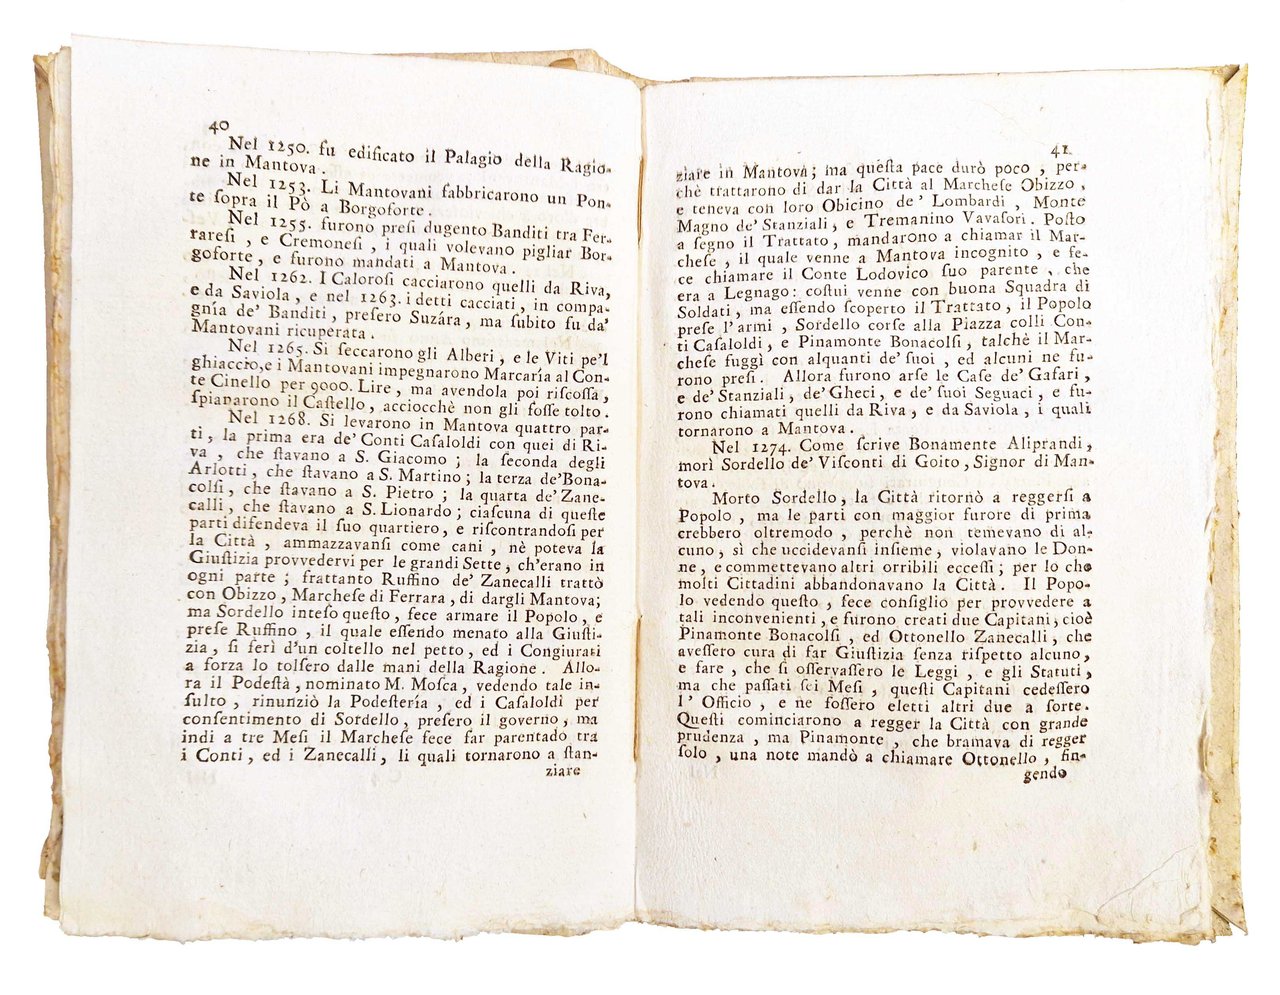 40
Nel 1250. fu edificato il Palagio della Ragio-
ne in Mantova .
Nel 1253. Li Mantovani fabbricarono un Pon-
te ſopra il Pò a Borgoforte .
Nel 1255. furono preſi dugento Banditi tra Fer-
rareſi , e Cremoneſi , i quali volevano pigliar Bor-
goforte , e furono mandati a Mantova .
Nel 1262. I Caloroſi cacciarono quelli da Riva,
e da Saviola , e nel 1263. i detti cacciati , in compa-
gnía de' Banditi , preſero Suzára , ma ſubito fu da'
Mantovani ricuperata .
Nel 1265. Si ſeccarono gli Alberi , e le Viti pe'l
ghiaccio,e i Mantovani impegnarono Marcaría al Con-
te Cinello per 9000. Lire , ma avendola poi riſcoſſa ,
ſpianarono il Caſtello , acciocchè non gli foſſe tolto .
Nel 1268. Si levarono in Mantova quattro par-
ti , la prima era de' Conti Caſaloldi con quei di Ri-
va , che ſtavano a S. Giacomo ; la ſeconda degli
Arlotti , che ſtavano a S. Martino ; la terza de'Bona-
colſi , che ſtavano a S. Pietro ; la quarta de' Zane-
calli , che ſtavano a S. Lionardo ; ciaſcuna di queſte
parti difendeva il ſuo quartiero, e riſcontrandoſi per
la Città , ammazzavanſi come cani , nè poteva la
Giuſtizia provvedervi per le grandi Sette, ch'erano in
ogni parte ; frattanto Ruffino de' Zanecalli trattò
con Obizzo , Marcheſe di Ferrara , di dargli Mantova;
ma Sordello inteſo queſto , fece armare il Popolo , e
preſe Ruffino , il quale eſſendo menato alla Giuſti-
zia , ſi ferì d'un coltello nel petto , ed i Congiurati
a forza lo tolſero dalle mani della Ragione . Allo-
ra il Podeſtà , nominato M. Moſca , vedendo tale in-
ſulto , rinunziò la Podeſtería , ed i Caſaloldi per
conſentimento di Sordello, preſero il governo, ma
indi a tre Meſi il Marcheſe fece far parentado tra
i Conti , ed i Zanecalli , li quali tornarono a ſtan-
ziare
41
ziare in Mantova ; ma queſta pace durò poco , per-
chè trattarono di dar la Città al Marcheſe Obizzo ,
e teneva con loro Obicino de' Lombardi , Monte
Magno de' Stanziali , e Tremanino Vavaſori. Poſto
a ſegno il Trattato , mandarono a chiamar il Mar-
cheſe , il quale venne a Mantova incognito , e fe-
ce chiamare il Conte Lodovico ſuo parente , che
era a Legnago : coſtui venne con buona Squadra di
Soldati , ma eſſendo ſcoperto il Trattato, il Popolo
preſe l'armi , Sordello corſe alla Piazza colli Con-
ti Caſaloldi , e Pinamonte Bonacolſi , talchè il Mar-
cheſe fuggì con alquanti de' ſuoi , ed alcuni ne fu-
rono preſi . Allora furono arſe le Caſe de' Gafari ,
e de' Stanziali , de' Gheci , e de' ſuoi Seguaci , e fu-
rono chiamati quelli da Riva , e da Saviola , i quali
tornarono a Mantova .
Nel 1274. Come ſcrive Bonamente Aliprandi ,
morì Sordello de' Viſconti di Goito , Signor di Man-
tova .
Morto Sordello , la Città ritornò a reggerſi a
Popolo , ma le parti con maggior furore di prima
crebbero oltremodo , perchè non temevano di al-
cuno , sì che uccidevanſi inſieme, violavano le Don-
ne , e commettevano altri orribili ecceſſi ; per lo che
molti Cittadini abbandonavano la Città . Il Popo-
lo vedendo queſto , fece conſiglio per provvedere a
tali inconvenienti , e furono creati due Capitani, cioè
Pinamonte Bonacolſi , ed Ottonello Zanecalli , che
aveſſero cura di far Giuſtizia ſenza riſpetto alcuno ,
e fare , che ſi oſſervaſſero le Leggi , e gli Statuti ,
ma che paſſati ſei Meſi , queſti Capitani cedeſſero
l' Officio , e ne foſſero eletti altri due a ſorte .
Queſti cominciarono a regger la Città con grande
prudenza , ma Pinamonte , che bramava di regger
ſolo , una note mandò a chiamare Ottonello , fin-
gendo